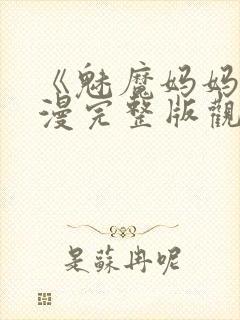 《魅魔妈妈
漫完整版觀
是蘇冉呢